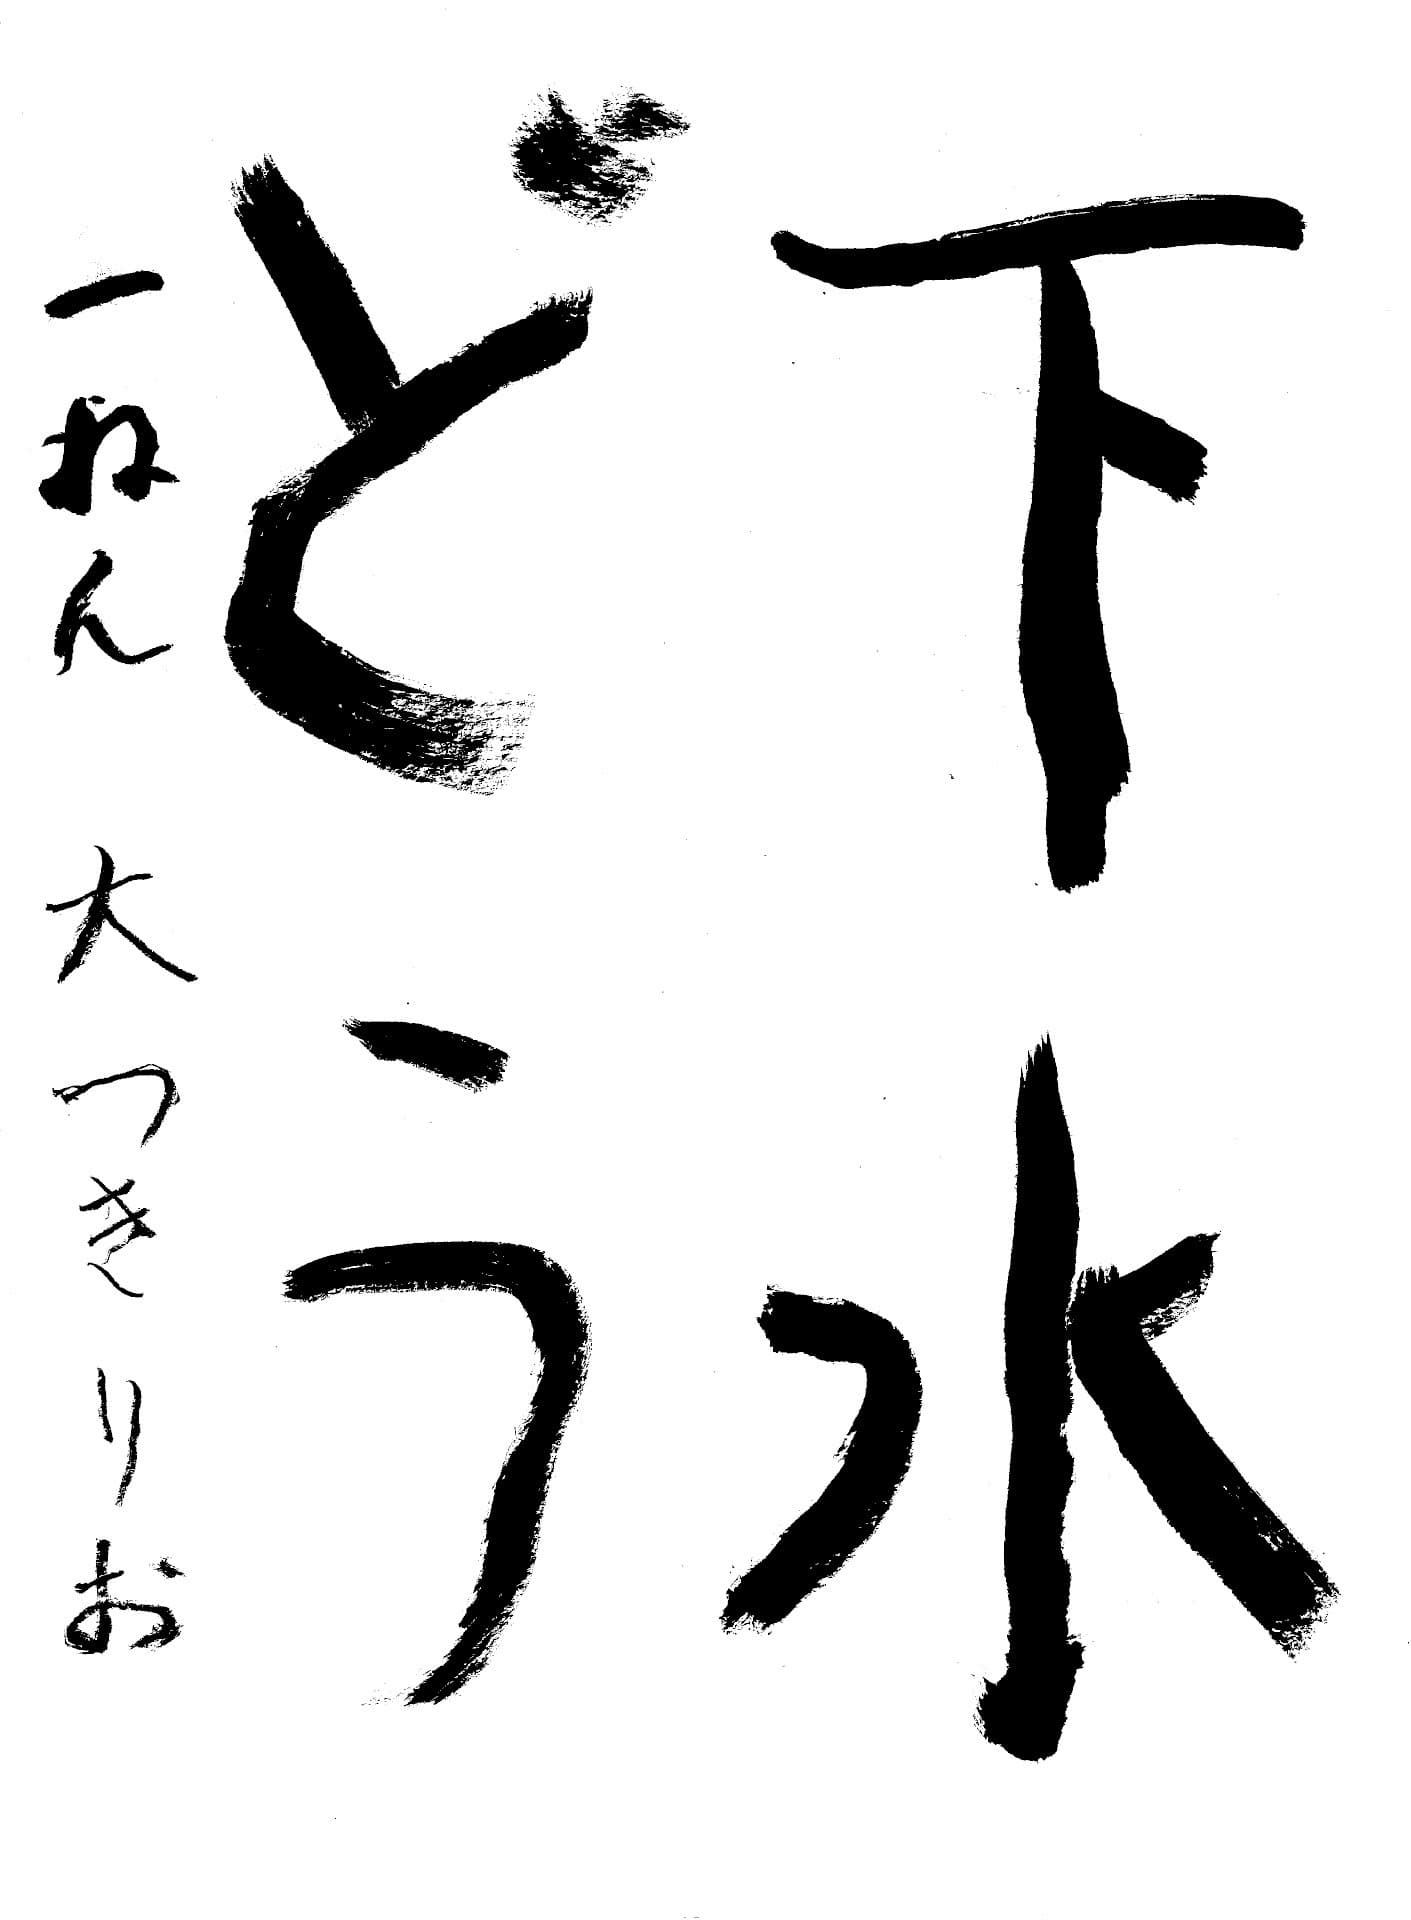 下水
どう
一ねん 大つきりお